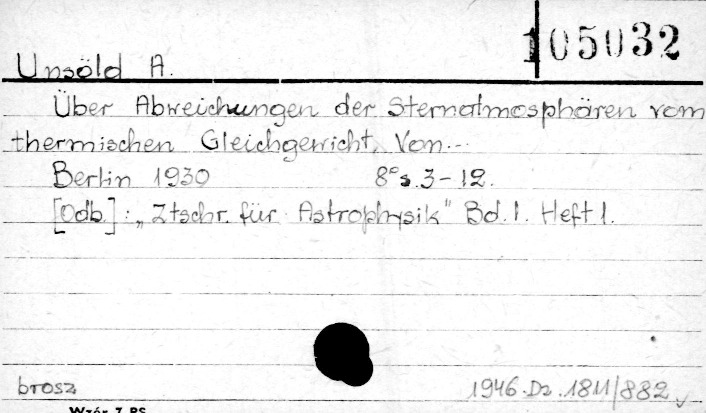 105032
Unsöld A.
Über Abweichungen der Sternatmosphären vom
thermischen Gleichgewicht. Von...
Berlin 1930 8° s. 3-12.
[Odb.]: „Ztschr. für Astrophysik" Bd. 1. Heft 1.
brosz 1946. Dz. 1811/882
Wzór 7 BS